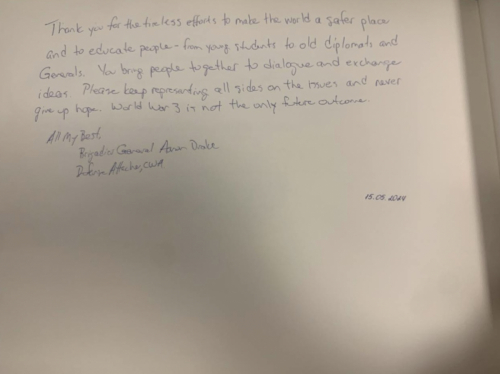 Thank you for the tireless efforts to make the world a safer place
and to educate people - from young students to old diplomats and
Generals. You bring people together to dialogue and exchange
ideas. Please keep representing all sides on the issues and never
give up hope. World War 3 is not the only future outcome.
All My Best,
Brigadier General Aaron Drake
Defense Attache,
15.05.2024